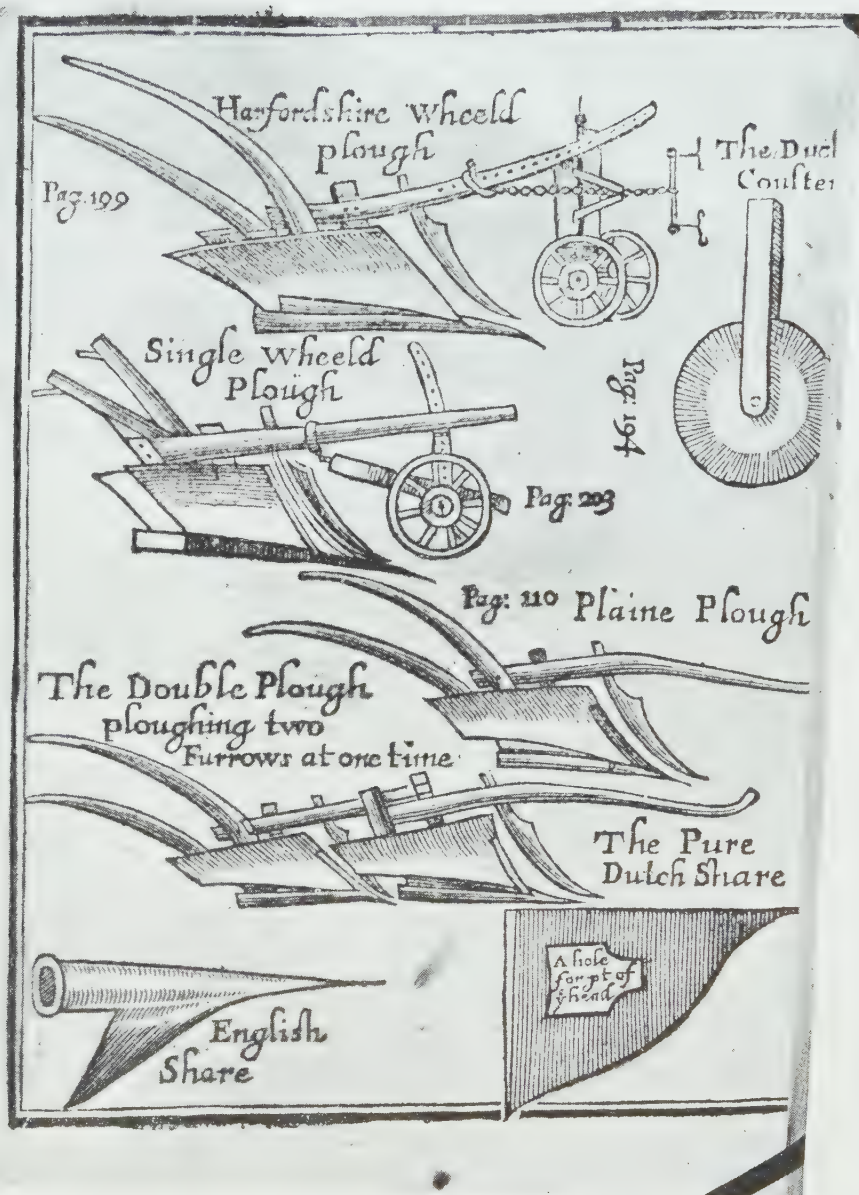 Harfordshire Wheeld
plough
Pag. 199
The Duch
Coulter
Single Wheeld
Plough
Pag: 194
Pag: 203
Pag: 210 Plaine Plough
The Double Plough
ploughing two
Furrows at one time
The Pure
Dutch Share
A hole
for pt of
ye head
English
Share